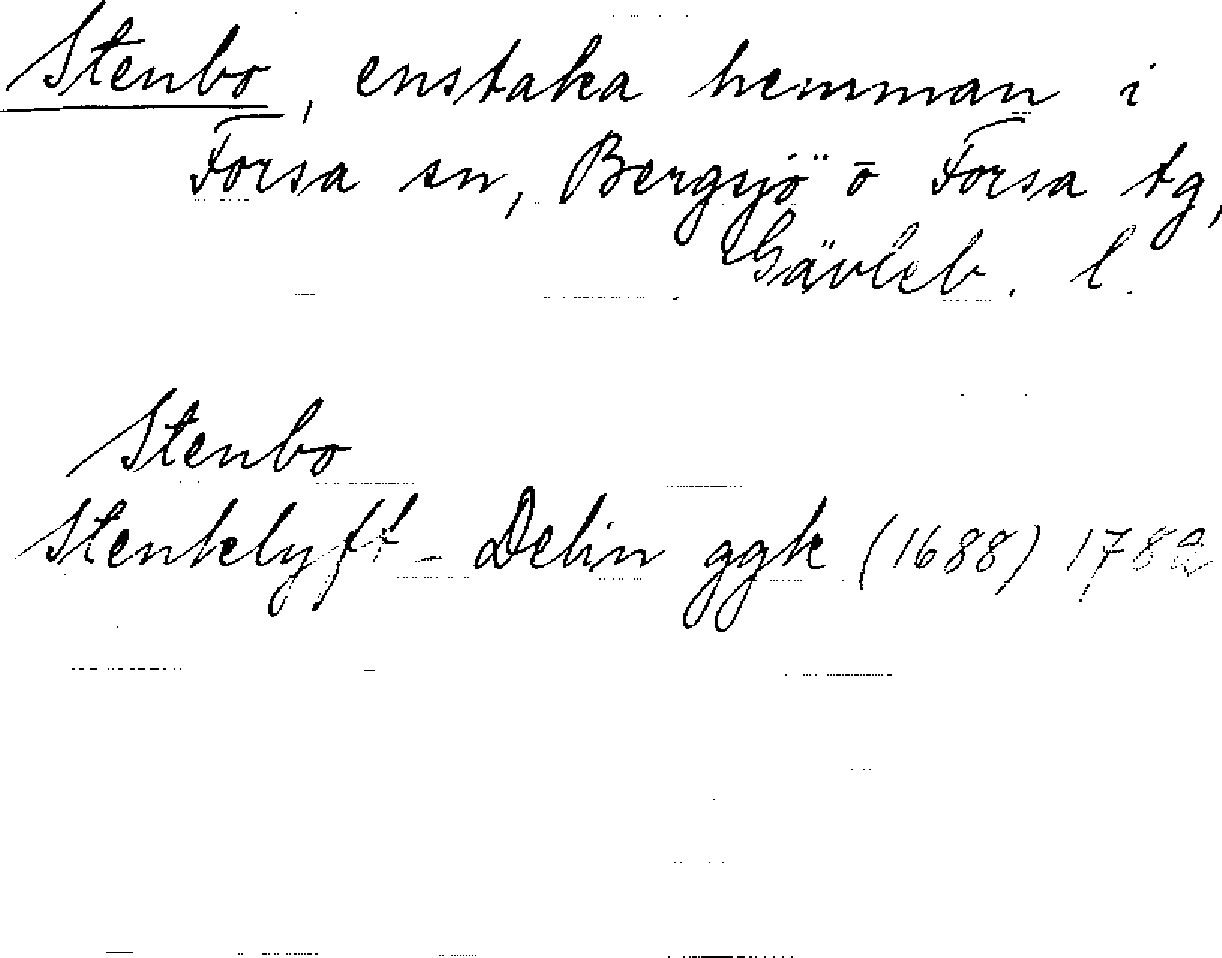 Stenbo, enstaka hemman i
Forsa sn, Bergsjö o Forsa tg,
Gävleb. l.
Stenbo
Stenklyft - Delin ggk (1688) 1782